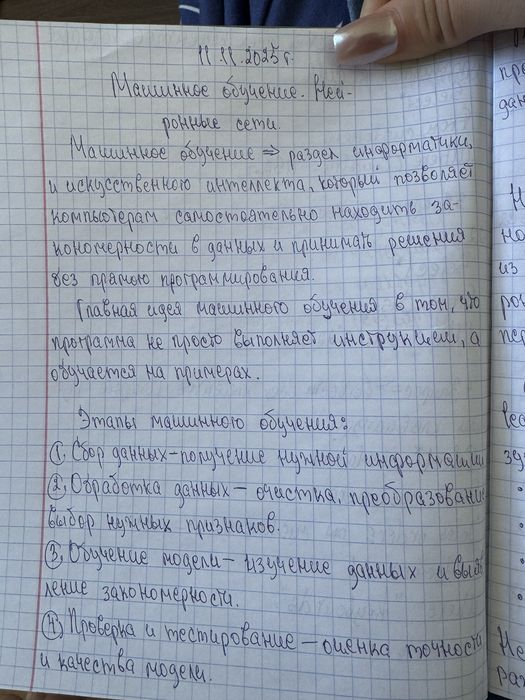 11.11.2025 г.
Машинное обучение. Ней-
ронные сети.
Машинное обучение => раздел информатики,
и искусственного интеллекта, который позволяет
компьютерам самостоятельно находить за-
кономерности в данных и принимать решения
без прямого программирования.
Главная идея машинного обучения в том, что
программа не просто выполняет инструкции, а
обучается на примерах.
Этапы машинного обучения:
1. Сбор данных - получение нужной информации
2. Обработка данных - очистка, преобразование
выбор нужных признаков.
3. Обучение модели - изучение данных и выяв
ление закономерности.
4. Проверка и тестирование - оценка точности
и качества модели.
пре
дан
но
из